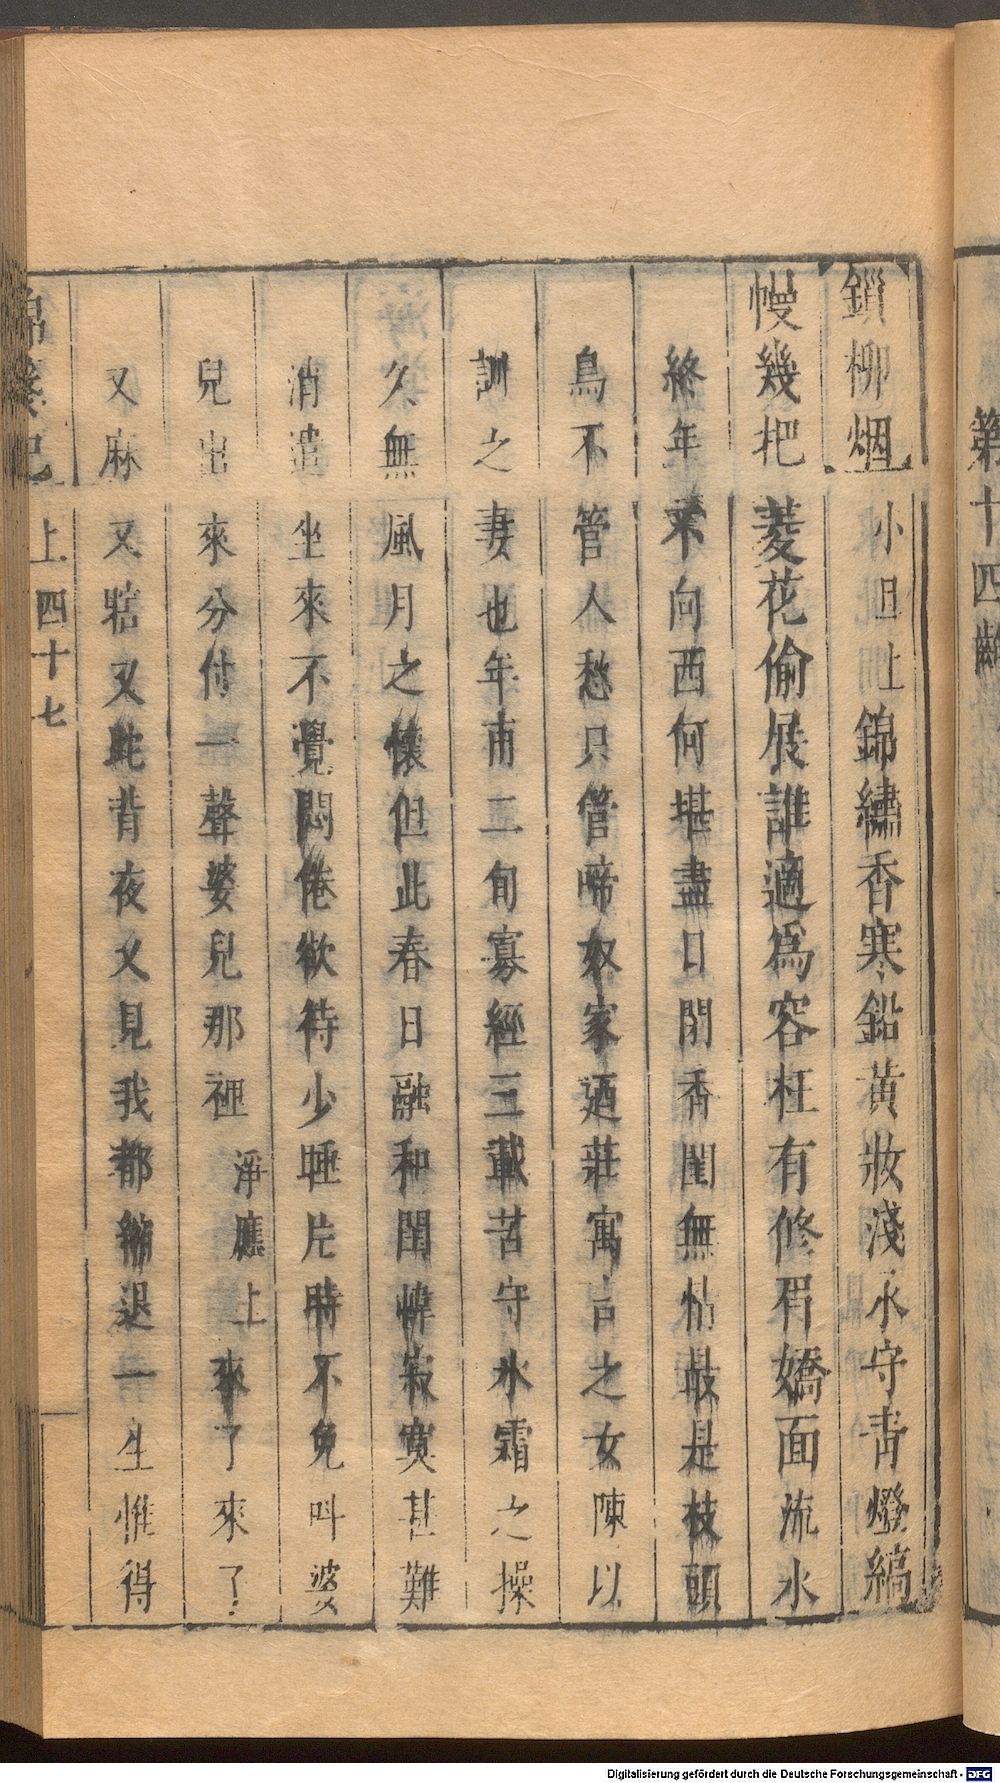 第十四齣
鎖柳烟 小旦上 錦繡香寒鉛黃妝淺永守青燈縞
幔幾把菱花偷展誰適爲容枉有修眉嬌面流水
終年不向西何堪盡日閉香閨無怙最是枝頭
鳥不管人愁只管啼奴家迺莊寓言之女陳以
訓之妻也年甫二旬寡經三載苦守氷霜之操
久無風月之懷但此春日融和閨幃寂寞甚難
消遣坐來不覺悶倦欲待少睡片時不免呌婆
兒出來分付一聲婆兒那裡 淨應上 來了來了
又麻又又背夜又見我都退一生惟得
錦箋記 上 四十七
Digitalisierung gefördert durch die Deutsche Forschungsgemeinschaft - DFG